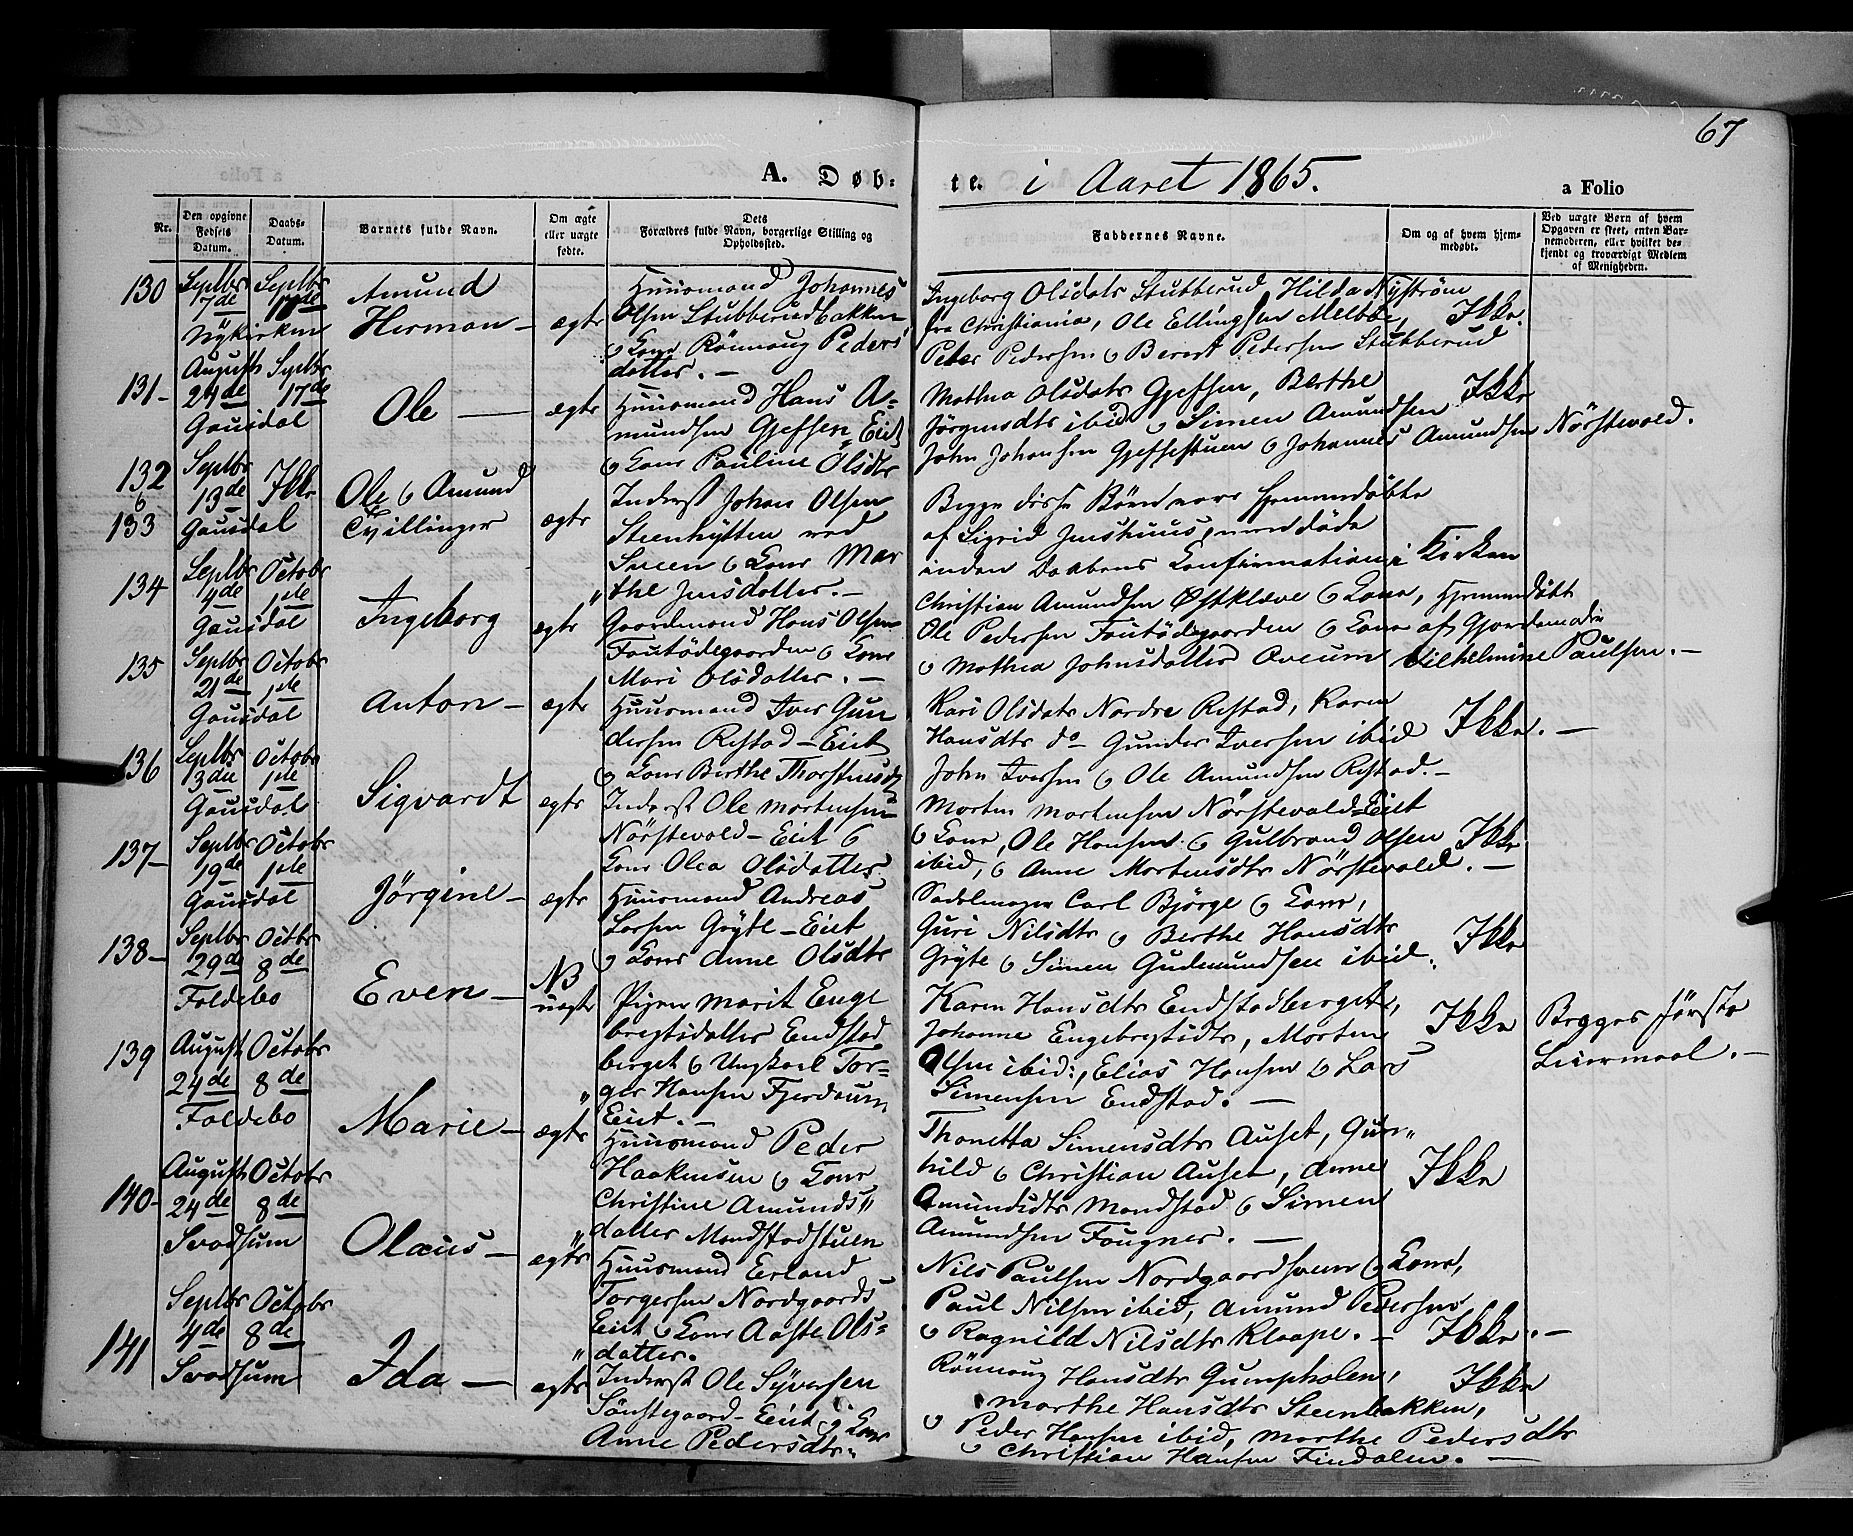 67
A. Døb-
te. i Aaret 1865.
a Folio
Nr.
Den opgivne Fødsels Datum.
Daabs-Datum.
Barnets fulde Navn.
Om ægte eller uægte fødte.
Dets Forældres fulde Navn, borgerlige Stilling og Opholdssted.
Faddernes Navne.
Om og af hvem hjemmedøbt.
Ved uægte Børn af hvem Opgaven er skeet, enten Barnemoderen, eller hvilket bekjendt og troværdigt Medlem af Menigheden.
130 Septbr 17de Septbr 17de
Nykirken
Amund
Herman – ægte
Huusmand Johannes
Olsen Stubberudbakken
og Kone Rönnaug Peders
datter. –
Ingeborg Olsdatr Stubberud Hilda Nyström
fra Christiania, Ole Ellingsen Melbøe,
Peter Pedersen og Berent Pedersen Stubberud
Ikke.
131– August 24de Septbr 17de
Gausdal
Ole – ægte
Huusmand Hans A-
mundsen Gjefsen Eiet
og Kone Pauline Olsdtr
Mathea Olsdatr Gjefsen, Berthe
Jörgensdtr ibid og Simen Amundsen
John Johansen Gjeffestuen og Johannes Amundsen Nörstevold.
Ikke
132 og 133 Septbr 13de Ikke
Gausdal
Ole og Amund
Tvillinger ægte
Inderst Johan Olsen
Steenhytten ved
Sveen og Kone Mar
the Jensdatter. –
Begge disse Börn vare hjemmedöbte
af Sigrid Jenshuus, men döde
inden Daabens Confirmation i Kirken
134 Septbr 4de Octobr 1ste
Gausdal
Ingeborg ægte
Gaardmand Hans Olsen
Foutödegaarden og Kone
Mari Olsdatter. –
Christian Amundsen Østklæve og Kone,
Ole Pedersen Foutödegaarden og Kone
og Mathea Johnsdatter Aveum
Hjemmedöbt
af Gjordemodr
Vilhelmine Paulsen. –
135 Septbr 21de Octobr 1ste
Gausdal
Anton – ægte
Huusmand Iver Gun
dersen Restad – Eiet
og Kone Berthe Thorstensdtr
Kari Olsdatr Nordre Restad, Karen
Hansdtr do – Gunder Iversen ibid
John Iversen og Ole Amundsen Restad. –
Ikke. –
136 Septbr 13de Octobr 1ste
Gausdal
Sigvardt ægte
Inderst Ole Mortensen
Nörstevold – Eiet og
Kone Olea Olsdatter
Morten Mortensen Nörstevold–Eiet
og Kone, Ole Hansen og Gulbrand Olsen
ibid, og Anne Mortensdtr Nörstevold. –
Ikke.
137– Septbr 19de Octobr 1ste
Gausdal
Jörgine – ægte
Huusmand Andreas
Larsen Gryte – Eiet
og Kone Anne Olsdtr
Sadelmager Carl Björge og Kone,
Guri Nilsdtr og Berthe Hansdtr
Gryte og Simen Gudmundsen ibid.
Ikke
138– Septbr 29de Octbr 8de
Foldebo
Even – NB uægte
Pigen Marit Enge
bregtsdatter Endstad
berget og Ungkarl Tor-
ger Hansen Fjerdum
Eiet. –
Karen Hansdtr Endstadberget,
Johanne Engebregtsdtr, Morten
Olsen ibid:, Elias Hansen og Lars
Simensen Endstad. –
Ikke
Begges förste
Leiermaal. –
139 August 24de Octobr 8de
Foldebo
Marie – ægte
Huusmand Peder
Haakensen og Kone
Christine Amunds
datter Mandstadstuen
Thonetta Simensdtr Auset, Gun
hild og Christian Auset, Anne
Amundsdtr Mandstad og Simen
Amundsen Fougner. –
Ikke
140– August 24de Octobr 8de
Svadsum
Olaus – ægte
Huusmand Erland
Torgersen Nordgaards
Eiet og Kone Aaste Ols-
datter.
Nils Paulsen Nordgaardsveen og Kone,
Paul Nilsen ibid, Amund Pedersen
og Ragnild Nilsdtr Klaape. –
Ikke. –
141 Septbr 4de Octobr 8de
Svadsum
Ida – ægte
Inderst Ole Syversen
Sönstegaard – Eiet og Kone
Anne Pedersdtr.
Rönnaug Hansdtr Gumpholen,
Marthe Hansdtr Steenbakken,
og Peder Hansen ibid, Marthe Pedersdtr
og Christian Hansen Findalen. –
Ikke